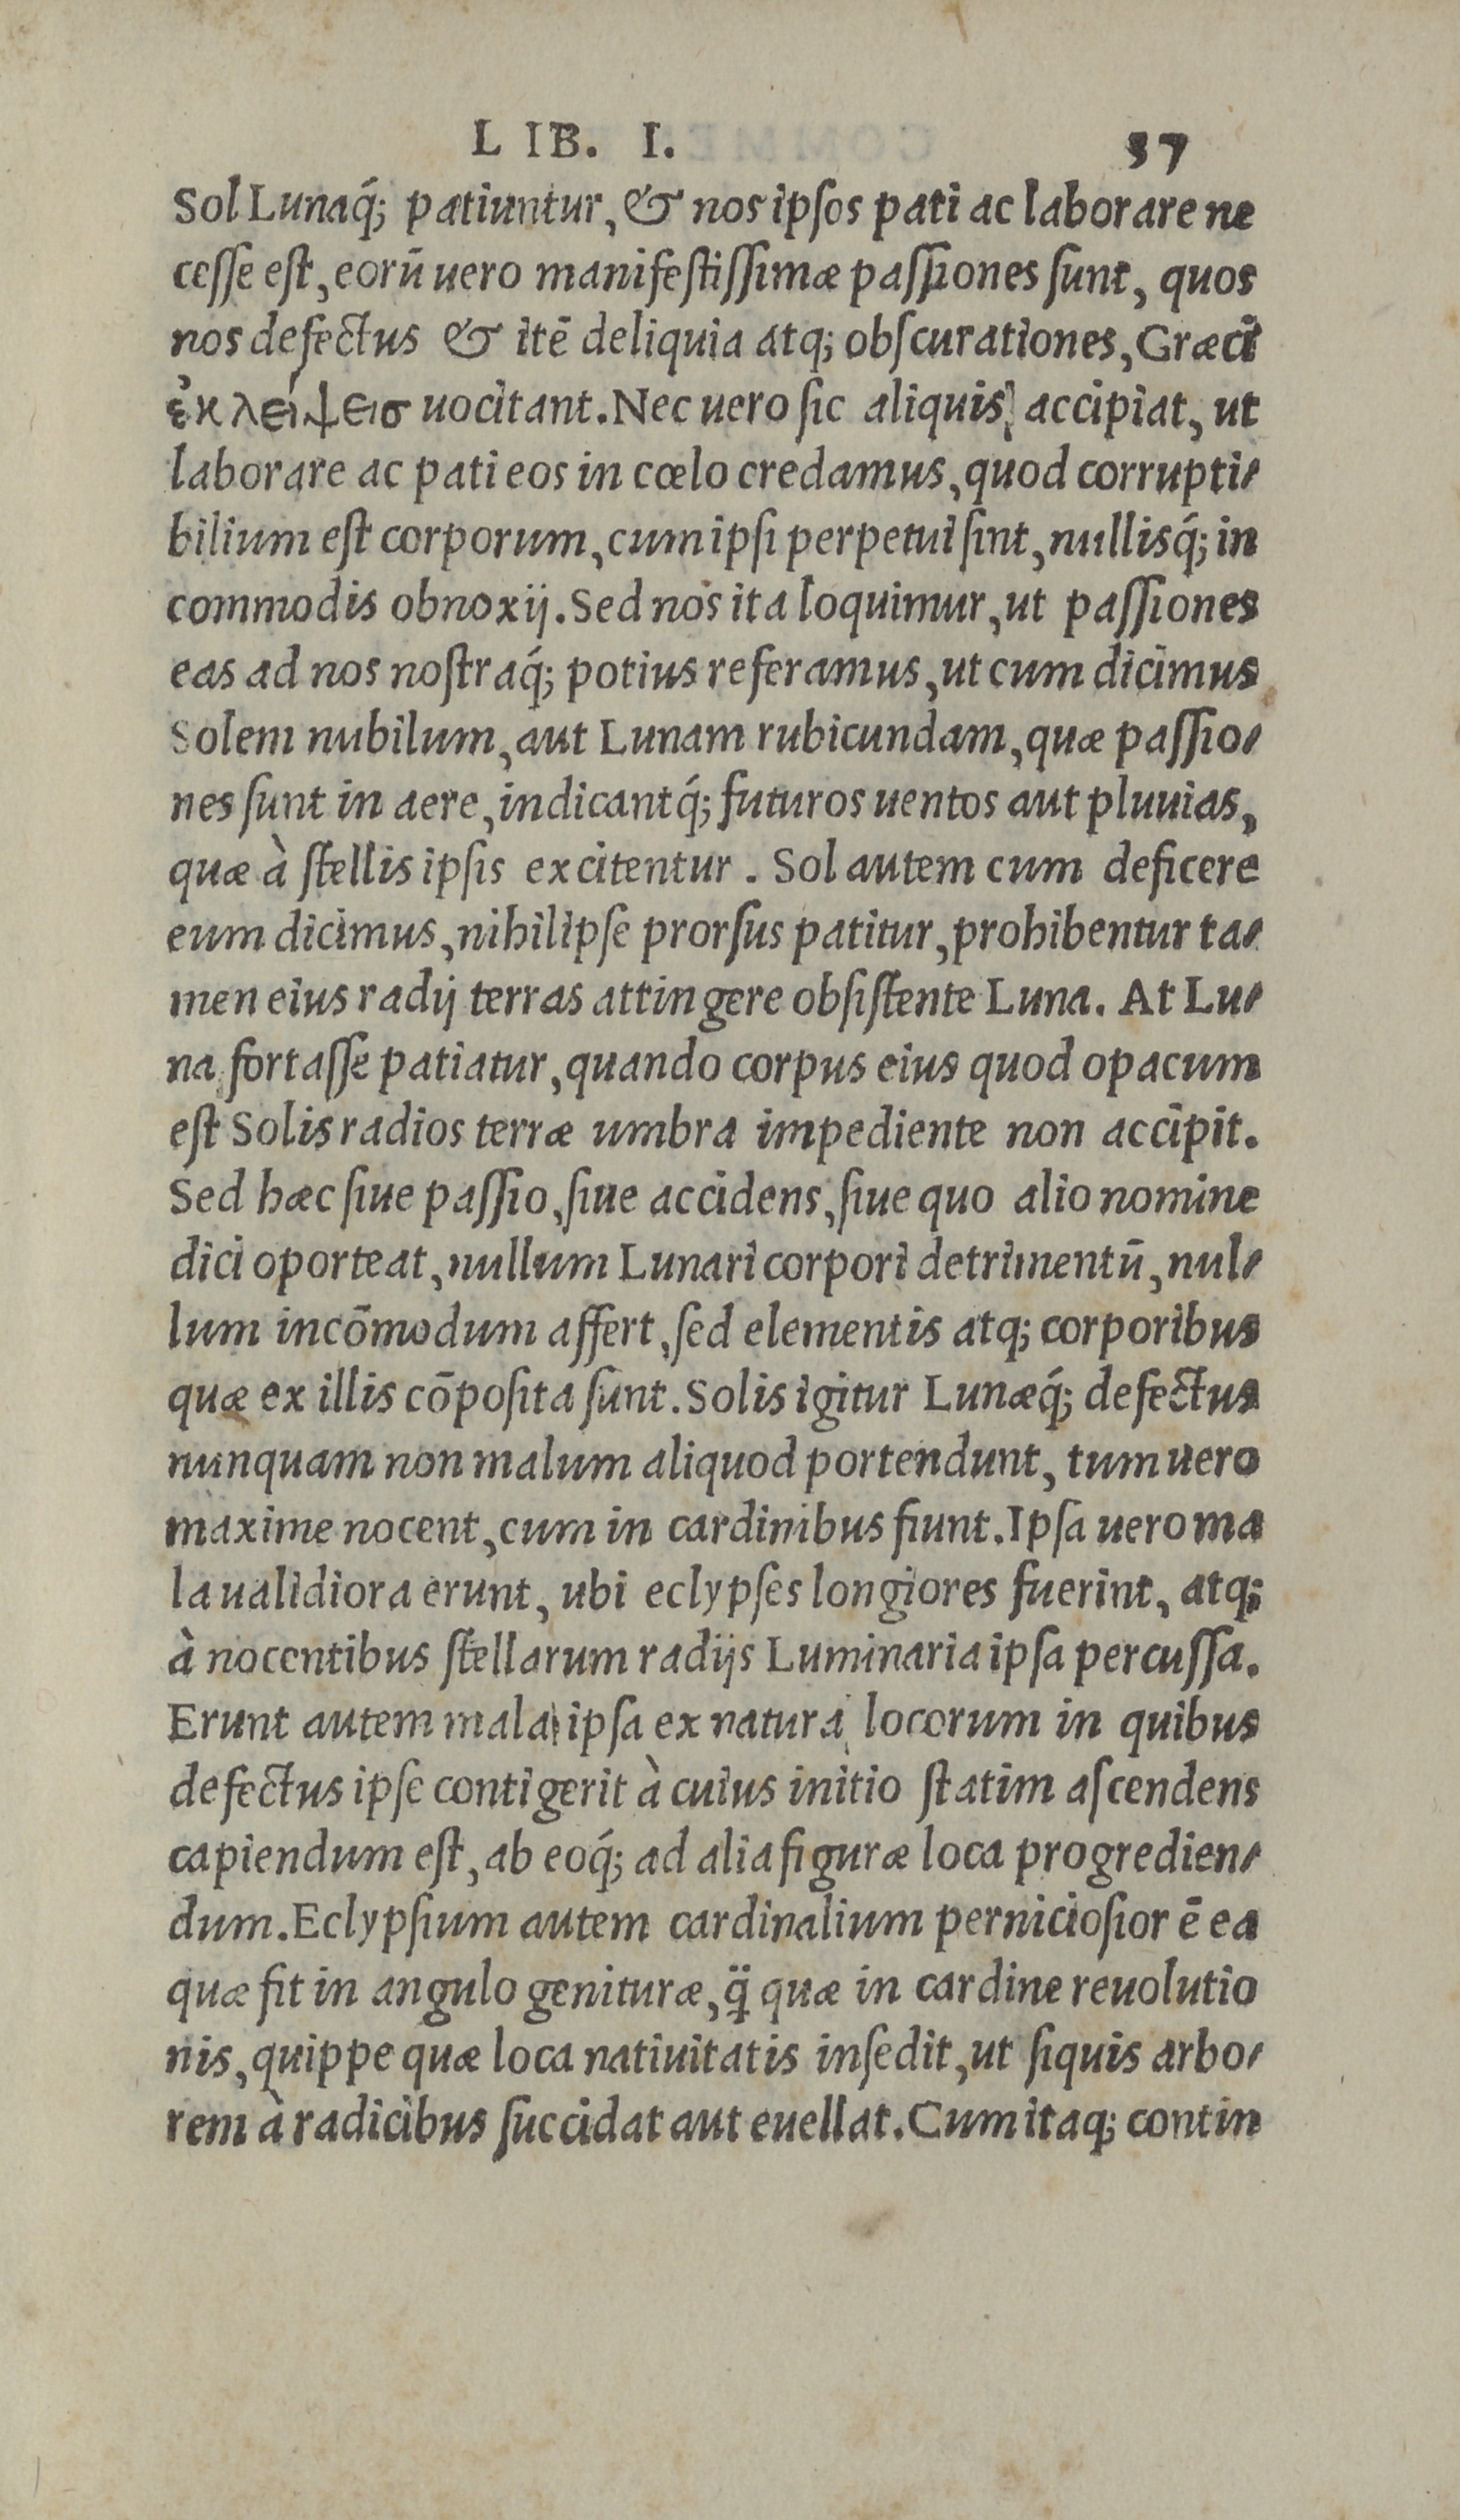 LIB. I. 37
Sol Lunaq́; patiuntur, & nos ipſos pati ac laborare ne
ceſſe eſt, eorū uero manifeſtiſſimæ paſſiones ſunt, quos
nos defectus & itē deliquia atq; obſcurationes, Græci
ἐκλείψεισ uocitant. Nec uero ſic aliquis accipiat, ut
laborare ac pati eos in cœlo credamus, quod corrupti-
bilium eſt corporum, cum ipſi perpetui ſint, nullisq́; in
commodis obnoxij. Sed nos ita loquimur, ut paſſiones
eas ad nos noſtraq́; potius referamus, ut cum dicimus
Solem nubilum, aut Lunam rubicundam, quæ paſſio-
nes ſunt in aere, indicantq́; futuros uentos aut pluuias,
quæ à ſtellis ipſis excitentur. Sol autem cum deficere
eum dicimus, nihil ipſe prorſus patitur, prohibentur ta-
men eius radij terras attingere obſiſtente Luna. At Lu-
na fortaſſe patiatur, quando corpus eius quod opacum
eſt Solis radios terræ umbra impediente non accipit.
Sed hæc ſiue paſſio, ſiue accidens, ſiue quo alio nomine
dici oporteat, nullum Lunari corpori detrimentū, nul-
lum incōmodum affert, ſed elementis atq; corporibus
quæ ex illis cōpoſita ſunt. Solis igitur Lunæq́; defectus
nunquam non malum aliquod portendunt, tum uero
maxime nocent, cum in cardinibus fiunt. Ipſa uero ma
la ualidiora erunt, ubi eclypſes longiores fuerint, atq;
à nocentibus ſtellarum radijs Luminaria ipſa percuſſa.
Erunt autem mala ipſa ex natura locorum in quibus
defectus ipſe contigerit à cuius initio ſtatim aſcendens
capiendum eſt, ab eoq́; ad alia figuræ loca progredien-
dum. Eclypſium autem cardinalium pernicioſior ē ea
quæ fit in angulo genituræ, q̈ quæ in cardine reuolutio
nis, quippe quæ loca natiuitatis inſedit, ut ſiquis arbo-
rem à radicibus ſuccidat aut euellat. Cum itaq; contin